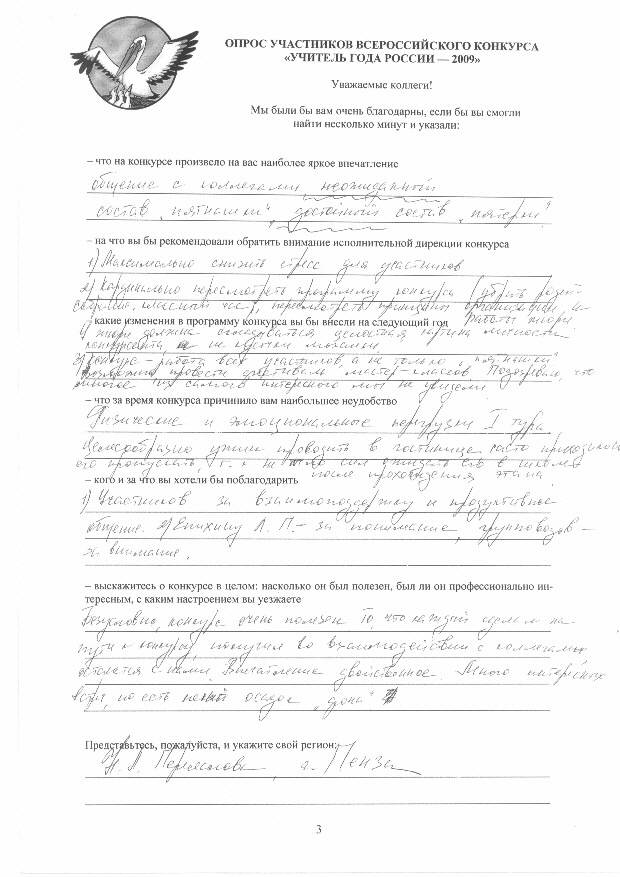 ОПРОС УЧАСТНИКОВ ВСЕРОССИЙСКОГО КОНКУРСА
«УЧИТЕЛЬ ГОДА РОССИИ — 2009»
Уважаемые коллеги!
Мы были бы вам очень благодарны, если бы вы смогли
найти несколько минут и указали:
– что на конкурсе произвело на вас наиболее яркое впечатление
общение с коллегами, неожиданный
состав „пятнашки", достойный состав „пятерки"
– на что вы бы рекомендовали обратить внимание исполнительной дирекции конкурса
1) Максимально снизить стресс для участников
2) Кардинально пересмотреть программу конкурса (убрать
классный час), пересмотреть принципы организации и
– какие изменения в программу конкурса вы бы внесли на следующий год работы жюри
1) жюри должна складываться целостная картина личности
конкурсанта, а не кусочки мозаики
2) Конкурс – работа всех участников, а не только „пятнашки"
провести фестиваль мастер-классов. Подозреваю, что
многое из самого интересного мы не увидели
– что за время конкурса причинило вам наибольшее неудобство
Физические и эмоциональные перегрузки I тура
Целесообразно ужин проводить в гостинице, часто приходилось
его пропускать, т. к. не было сил ожидать его в школе
после прохождения этапа
– кого и за что вы хотели бы поблагодарить
1) Участников за взаимоподдержку и продуктивное
общение. 2) Енихину Л. П. – за понимание, групповодов –
за внимание.
– выскажитесь о конкурсе в целом: насколько он был полезен, был ли он профессионально ин-
тересным, с каким настроением вы уезжаете
Безусловно, конкурс очень полезен. То, что каждый сделал на
пути к конкурсу, получил во взаимодействии с коллегами
останется с ними. Впечатление двойственное. Много интересных
встреч, но есть некий осадок „дна"
Представьтесь, пожалуйста, и укажите свой регион:
Н. А. г. Пенза
3